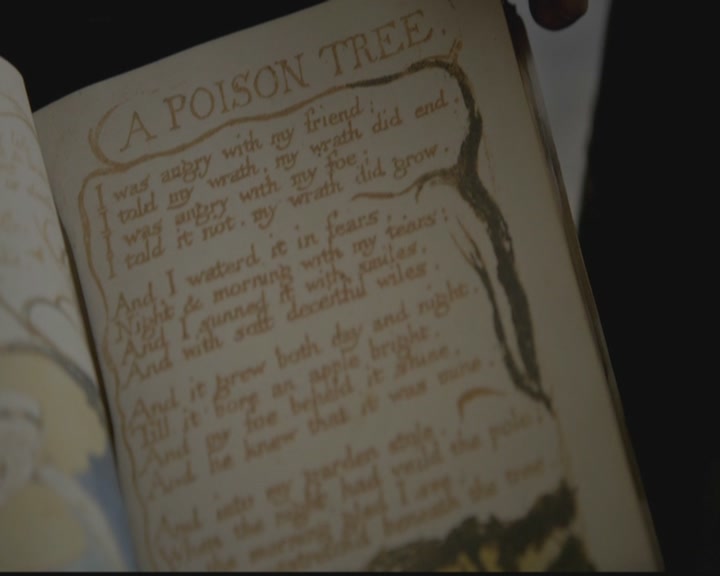 A POISON TREE.
I was angry with my friend:
I told my wrath, my wrath did end.
I was angry with my foe:
I told it not, my wrath did grow.
And I waterd it in fears,
Night & morning with my tears:
And I sunned it with smiles,
And with soft deceitful wiles.
And it grew both day and night.
Till it bore an apple bright.
And my foe beheld it shine.
And he knew that it was mine.
And into my garden stole.
When the night had veild the pole;
the morning glad I see.
beneath the tree.